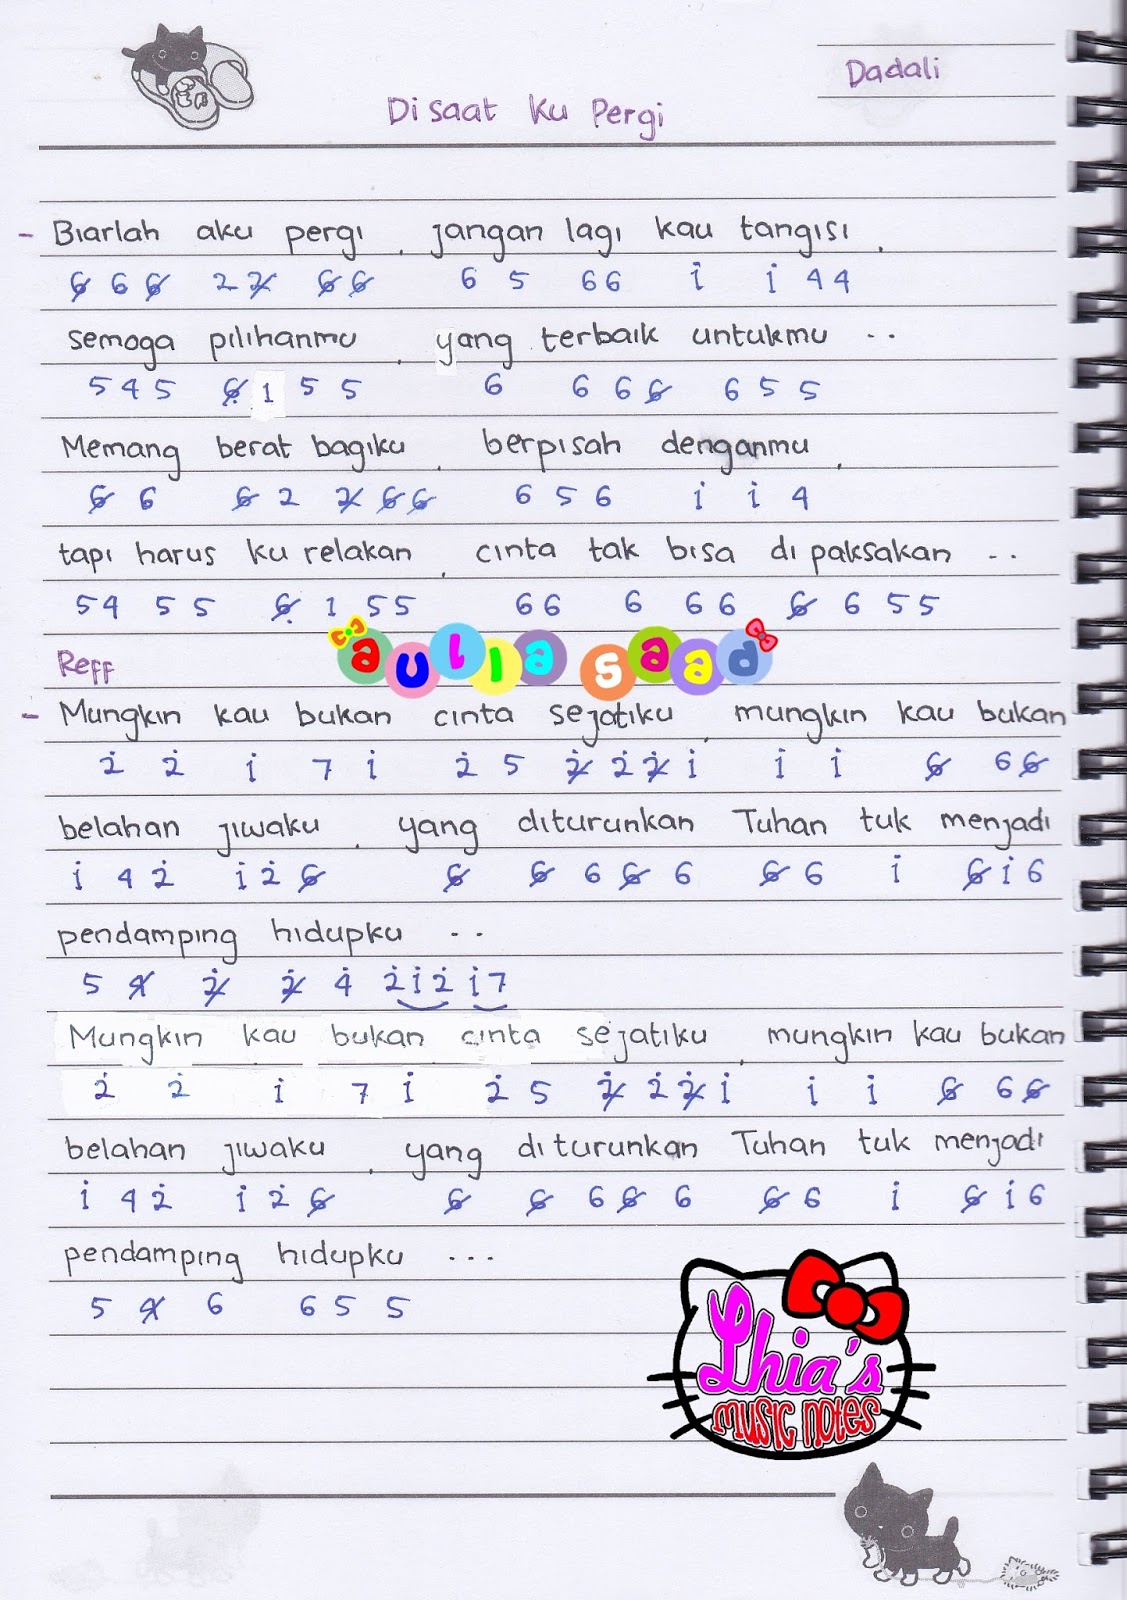 Dadali
Di saat Ku Pergi
- Biarlah aku pergi , jangan lagi kau tangisi ,
6̸ 6 6̸ 2 2̸ 6̸ 6̸ 6 5 6 6 i i 4 4
semoga pilihanmu , yang terbaik untukmu ..
5 4 5 6̸̣ 1 5 5 6 6 6 6̸ 6 5 5
Memang berat bagiku , berpisah denganmu ,
6̸ 6 6̸ 2 2̸ 6̸ 6̸ 6 5 6 i i 4
tapi harus ku relakan , cinta tak bisa di paksakan ..
5 4 5 5 6̸̣ 1 5 5 6 6 6 6 6 6̸ 6 5 5
aulia saad
Reff
- Mungkin kau bukan cinta sejatiku , mungkin kau bukan
2̇ 2̇ i 7 i 2̇ 5 2̸̇ 2̇ 2̸̇ i i i 6̸ 6 6̸
belahan jiwaku , yang diturunkan Tuhan tuk menjadi
i 4 2̇ i 2̇ 6̸ 6̸ 6̸ 6 6̸ 6 6̸ 6 i 6̸ i 6
pendamping hidupku ..
5 4̸ 2̸̇ 2̸̇ 4̇ 2̇ i 2̇ i 7
Mungkin kau bukan cinta sejatiku , mungkin kau bukan
2̇ 2̇ i 7 i 2̇ 5 2̸̇ 2̇ 2̸̇ i i i 6̸ 6 6̸
belahan jiwaku , yang di turunkan Tuhan tuk menjadi
i 4 2̇ i 2̇ 6̸ 6̸ 6̸ 6 6̸ 6 6̸ 6 i 6̸ i 6
pendamping hidupku ...
5 4̸ 6 6 5 5
Lhia's
music notes